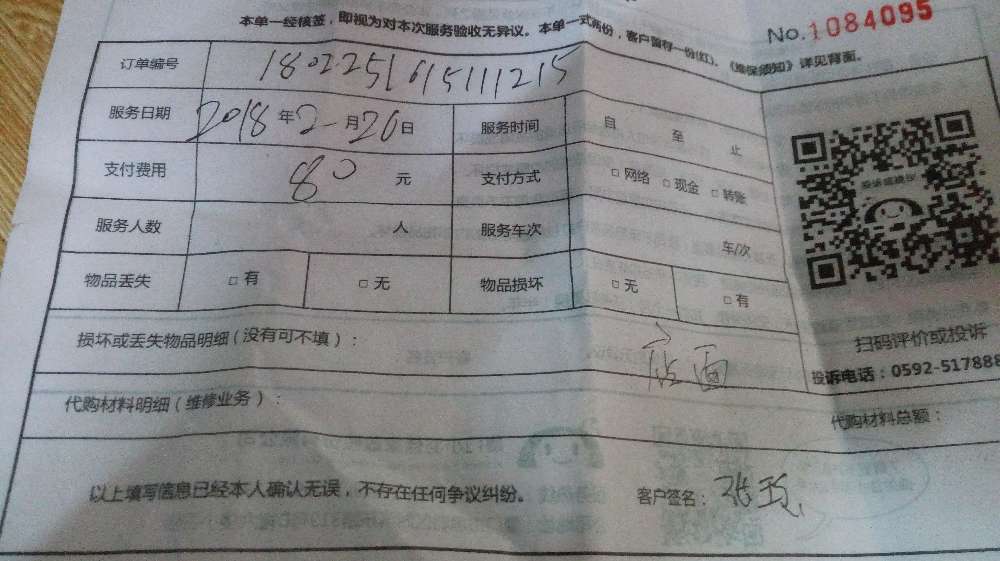 No.1084095
本单一经核签，即视为对本次服务验收无异议。本单一式两份，客户留存一份(红)。《维保须知》详见背面。
订单编号 1802251615111215
服务日期 2018年2月20日 服务时间 自 至 止
支付费用 80元 支付方式 □网络 □现金 □转账
服务人数 人 服务车次 车/次
物品丢失 □有 □无 物品损坏 □无 □有
损坏或丢失物品明细(没有可不填)：
扫码评价或投诉
投诉电话：0592-517888
代购材料明细(维修业务)：
代购材料总额：
以上填写信息已经本人确认无误，不存在任何争议纠纷。 客户签名：张